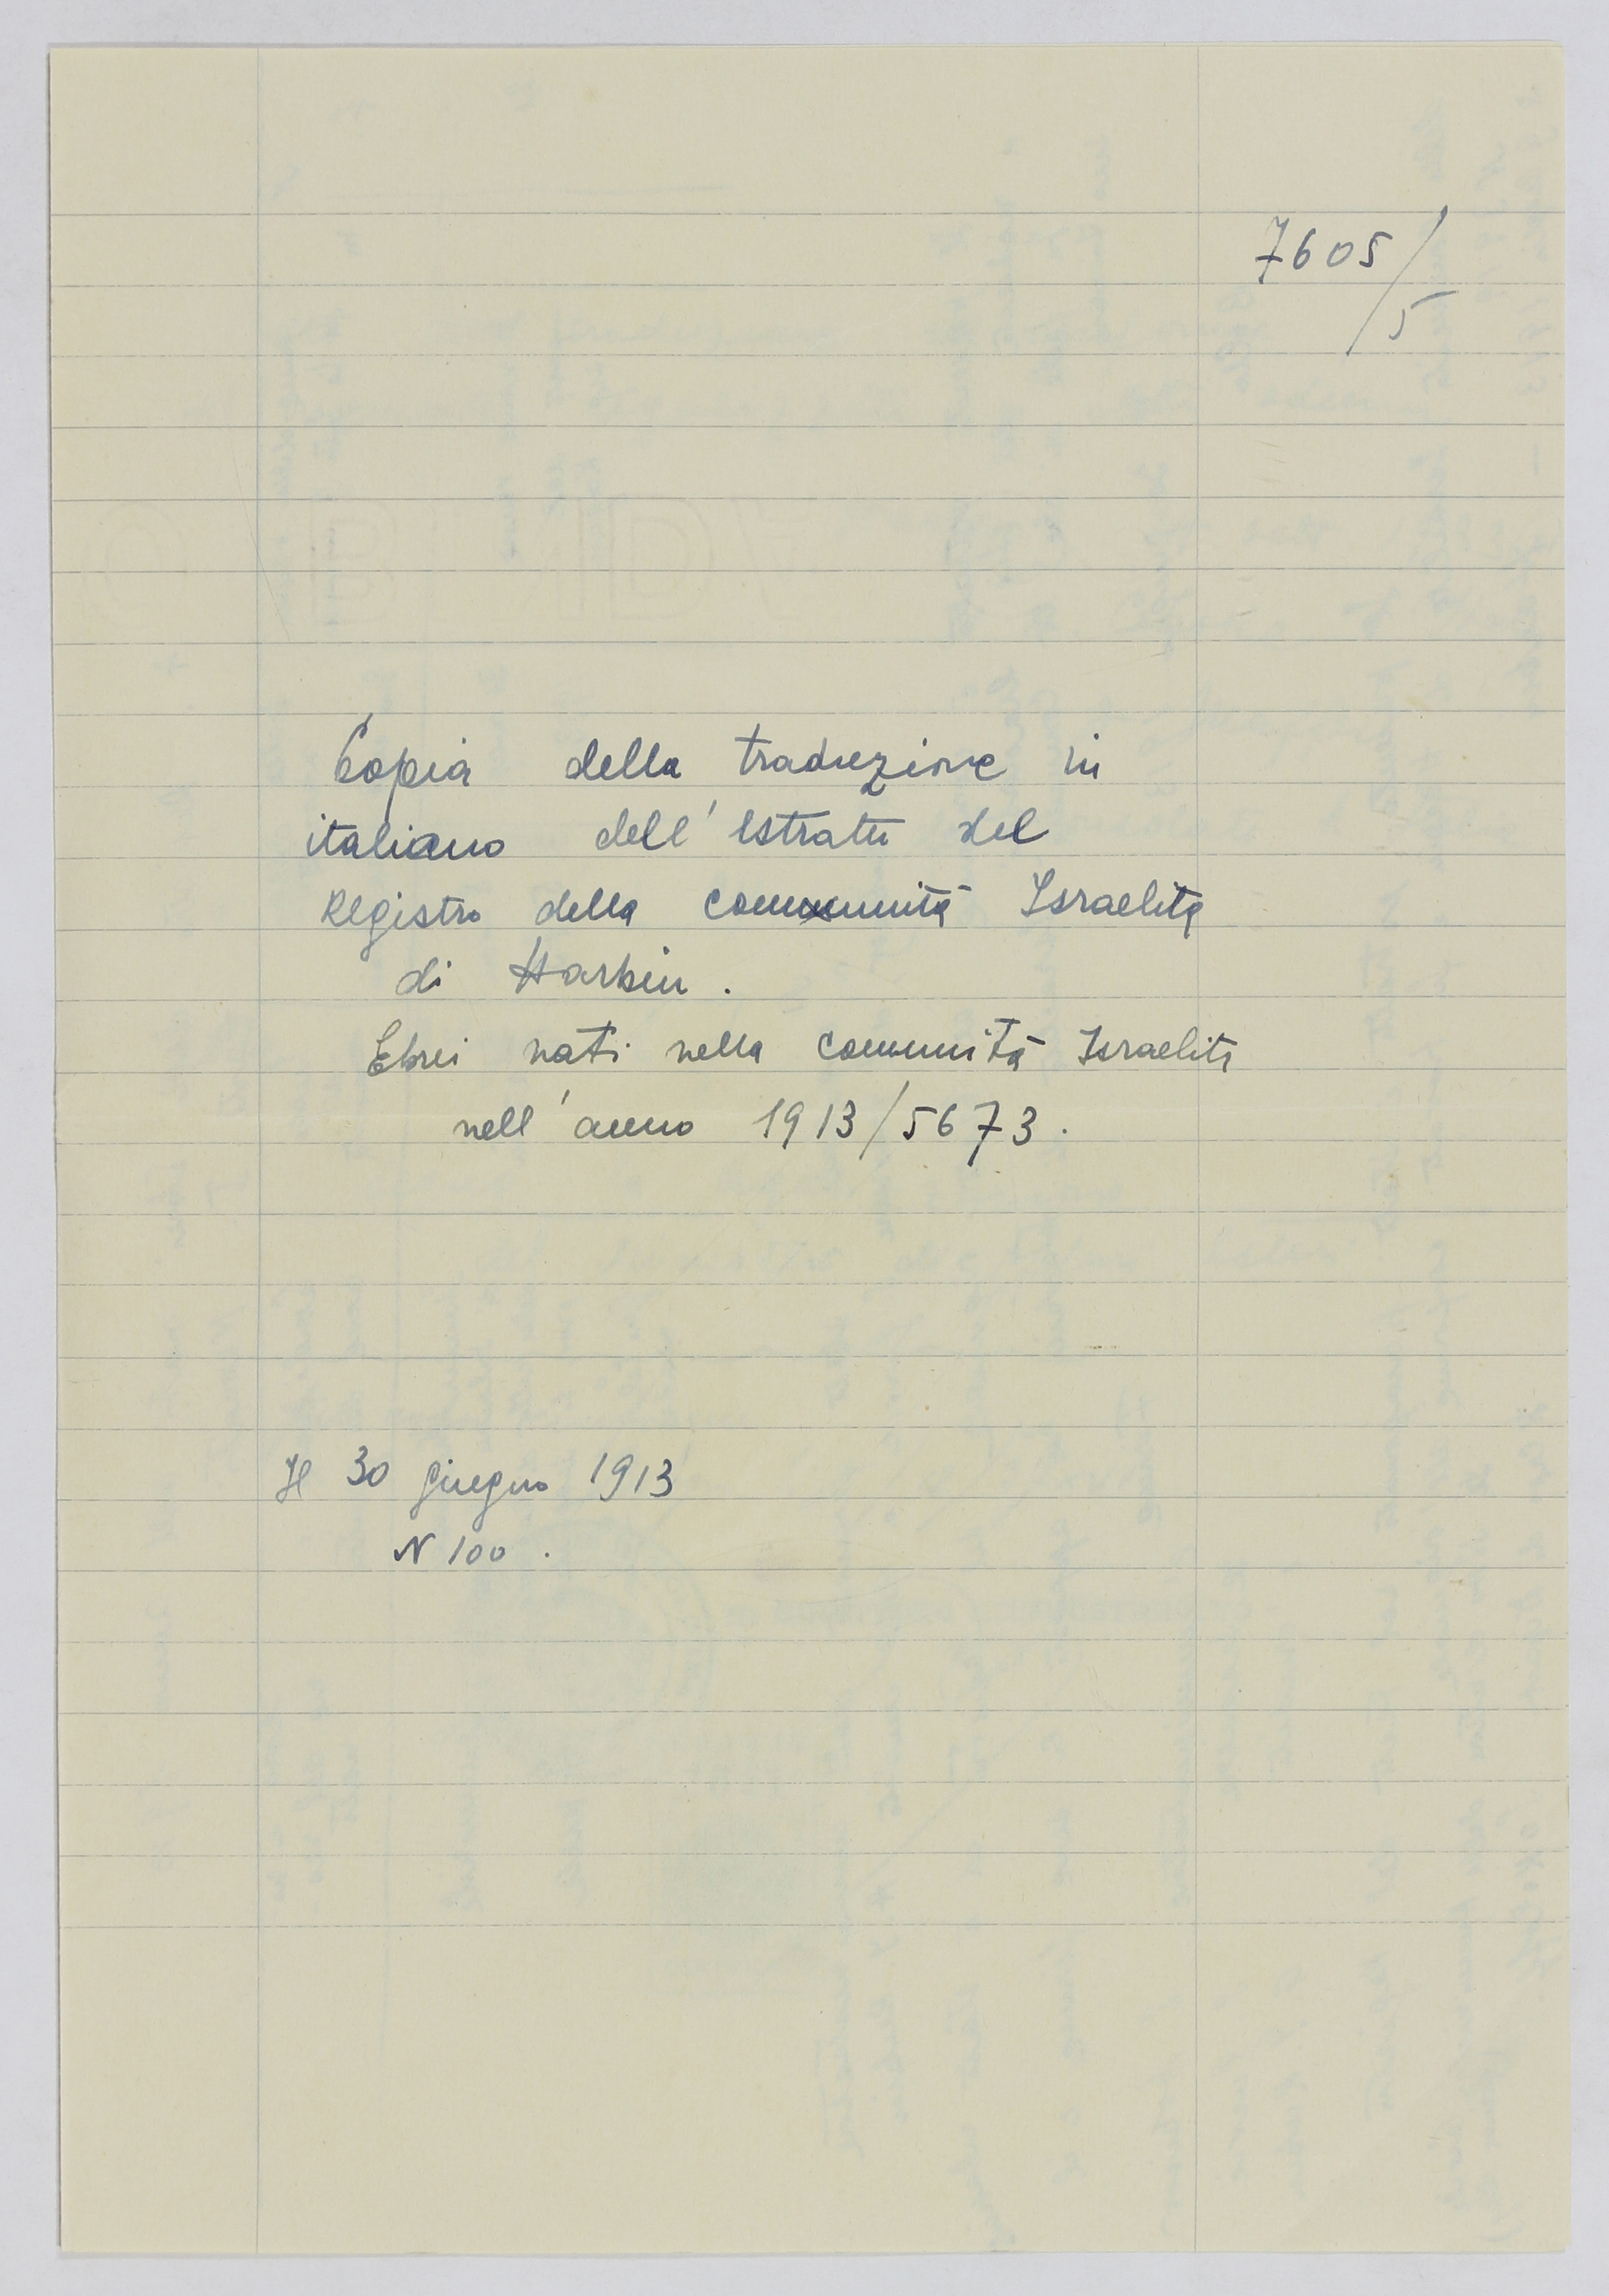 7605/5
Copia della traduzione in
italiano dell'Estratto del
Registro della comunità Israelita
di Harbin.
Ebrei nati nella comunità Israelita
nell'anno 1913/5673.
Il 30 giugno 1913
N 100.